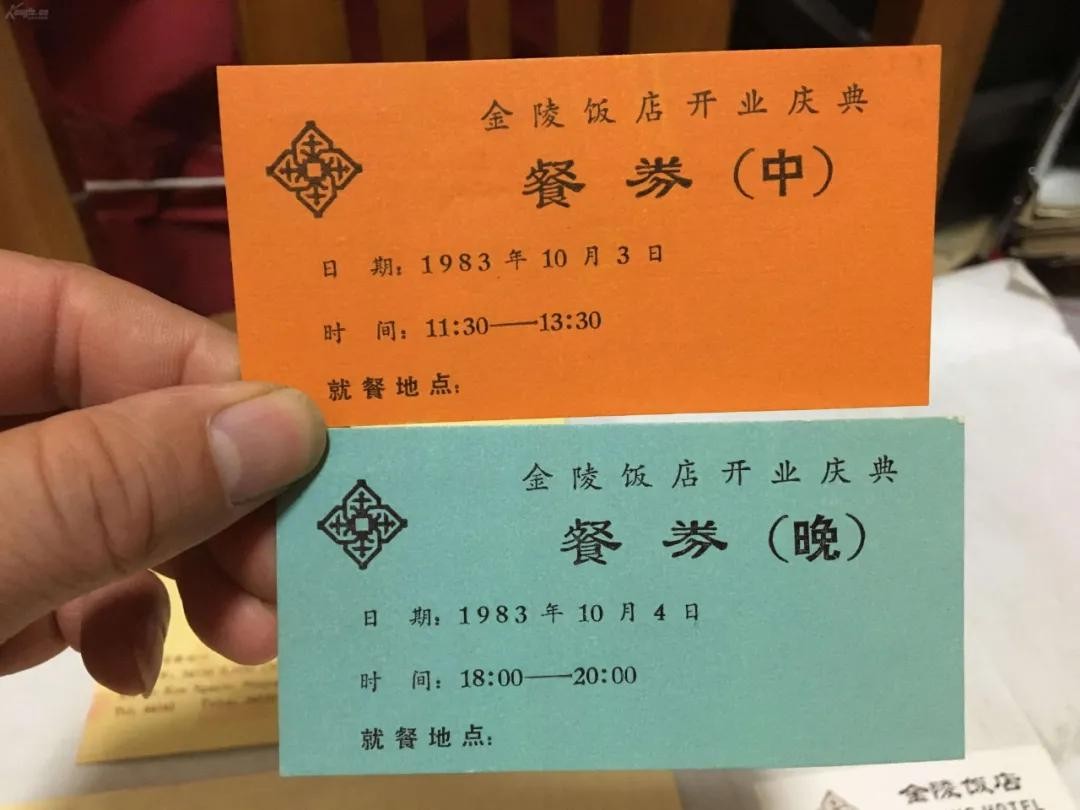 金陵饭店开业庆典
餐券（中）
日 期：1983年10月3日
时 间：11:30——13:30
就餐地点：
金陵饭店开业庆典
餐券（晚）
日 期：1983年10月4日
时 间：18:00——20:00
就餐地点：
金陵饭店